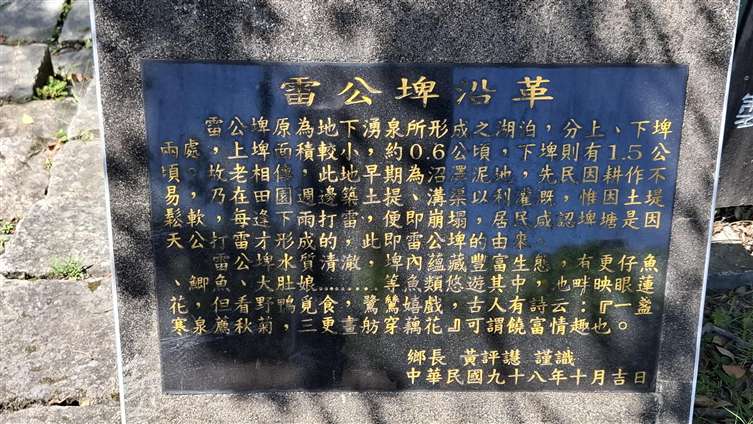 雷公埤沿革
雷公埤原為地下湧泉所形成之湖泊，分上、下埤
兩處，上埤面積較小，約0.6公頃，下埤則有1.5公
頃。故老相傳，此地早期為沼澤泥地，先民因耕作不
易，乃在田園週邊築土提、溝渠以利灌溉，惟因土堤
鬆軟，每逢下雨打雷，便即崩塌，居民咸認埤塘是因
天公打雷才形成的，此即雷公埤的由來。
雷公埤水質清澈，埤內蘊藏豐富生態，有更仔魚
、鯽魚、大肚娘………等魚類悠遊其中，也畔映眼蓮
花，但看野鴨覓食，鷺鷥嬉戲，古人有詩云：『一盞
寒泉薦秋菊，三更畫舫穿藕花』可謂饒富情趣也。
鄉長 黃評諶 謹識
中華民國九十八年十月吉日